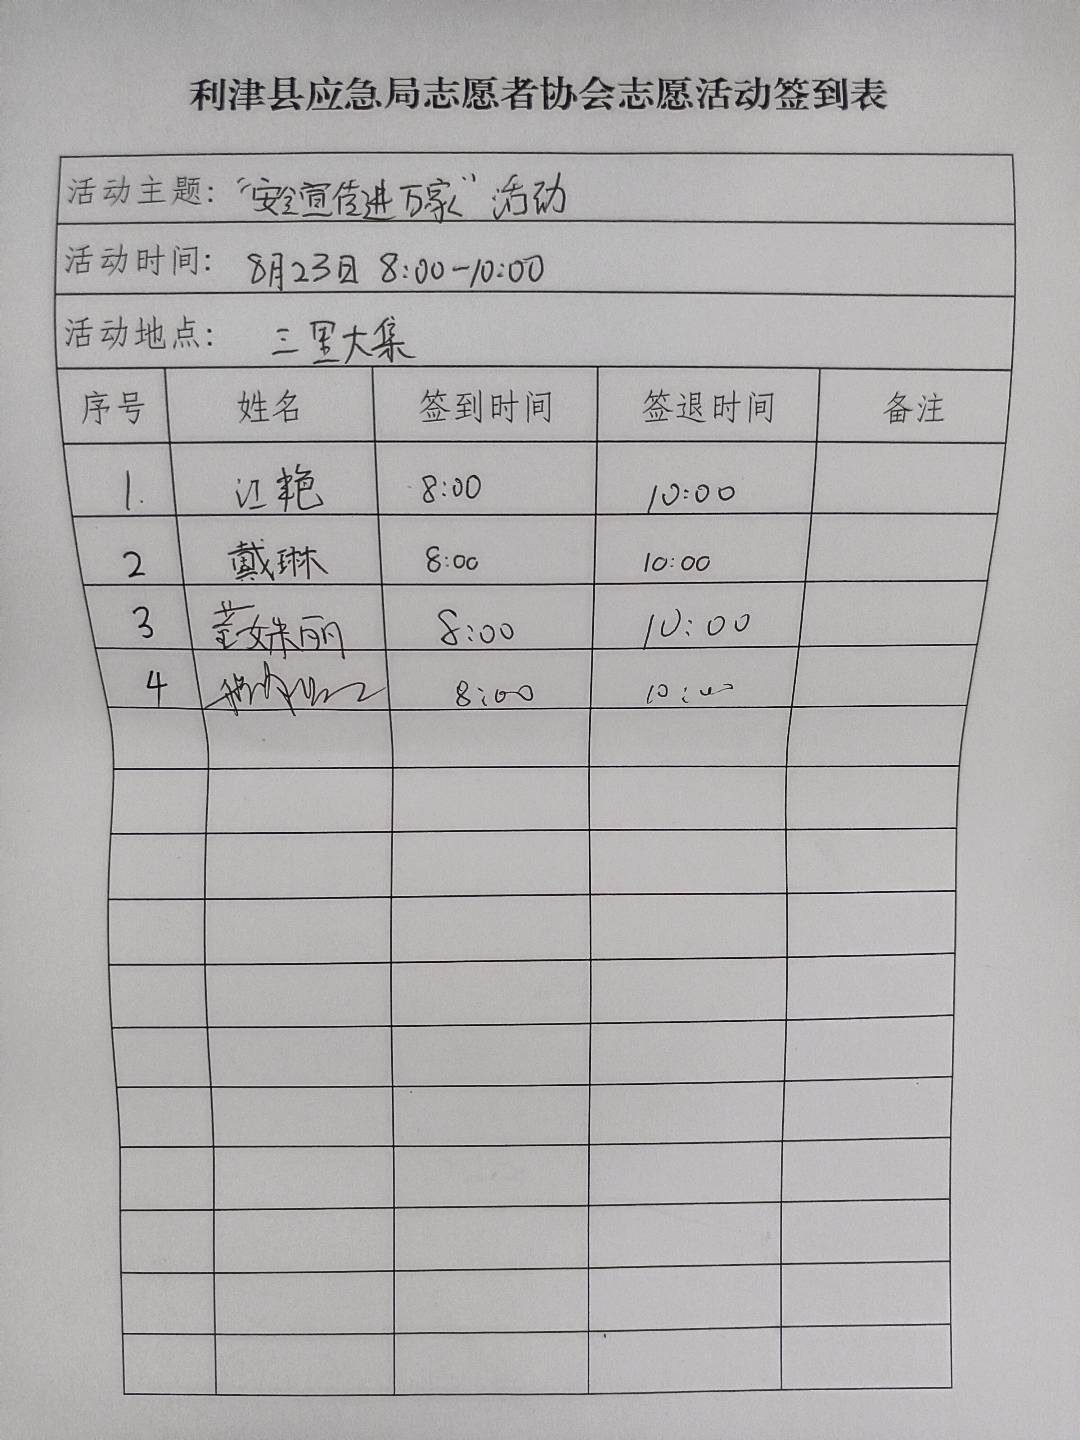 利津县应急局志愿者协会志愿活动签到表
活动主题: "安全宣传进万家"活动
活动时间: 8月23日 8:00-10:00
活动地点: 三里大集
序号 姓名 签到时间 签退时间 备注
1. 江艳 8:00 10:00
2 戴琳 8:00 10:00
3 董姝丽 8:00 10:00
4 8:00 10:00